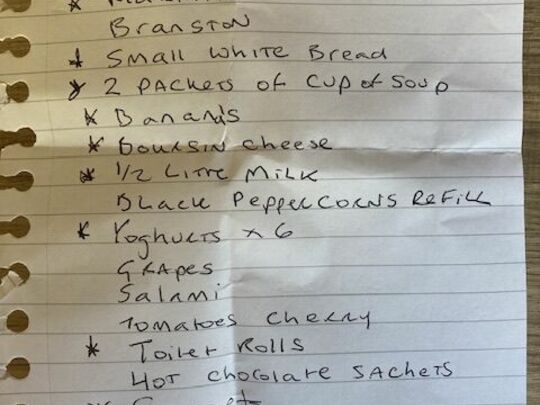 Branston
* Small White Bread
* 2 Packets of Cup of Soup
* Banana's
* Boursin cheese
* 1/2 Litre Milk
Black Peppercorns Refill
* Yoghurts x 6
Grapes
Salami
Tomatoes cherry
* Toilet Rolls
Hot chocolate sachets